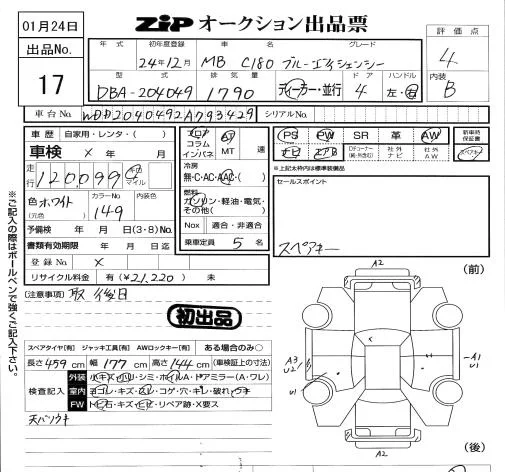 01月24日
ZIP オークション出品票
出品No.
17
評価点
4
内装
B
年式 初年度登録 車名 グレード
24年12月 MB C180 ブルーエフィシェンシー
型式 排気量 ドア ハンドル
DBA-204049 1790 ディーラー・並行 4 左・右
車台No. WDD2040492A793429 シリアルNo.
車歴 自家用・レンタ・( )
車検 × 年 月
走行 120,099 キロ マイル
色 ホワイト (元色)
カラーNo. 149
内装色
予備検 年 月 日(3・8)No.
書類有効期限 年 月 日迄
登録No. ×
リサイクル料金 有(¥21,220) 未
フロア コラム インパネ
AT MT 速
冷房
無・C・AC・AAC・( )
燃料
ガソリン・軽油・電気・その他( )
Nox 適合・非適合
乗車定員 5 名
PS PW SR 革 AW
ナビ エアB DFチューナー(純・社含む) 社外ナビ 社外AW
新車時保証書
スペアキー
*上記太枠内は標準装備品
セールスポイント
スペアキー
(注意事項) 取 後日
初出品
スペアタイヤ[有] ジャッキ工具[有] AWロックキー[有] ある場合のみ○
長さ 459 cm 幅 177 cm 高さ 144 cm (車検証上の寸法)
検査記入
外装 小キズ・小ハリ・シミ・ホイルA・ドアミラー(A・ワレ)
室内 ヨゴレ・キズ・スレ・コゲ・穴・キレ・破れ・ウキ
FW トビ石・キズ・ヒビ・リペア跡・X要ス
天バリウキ
(前)
A2
A3
U2
U1
A1
U1
A2
(後)
※ご記入の際はボールペンで強くご記入下さい。